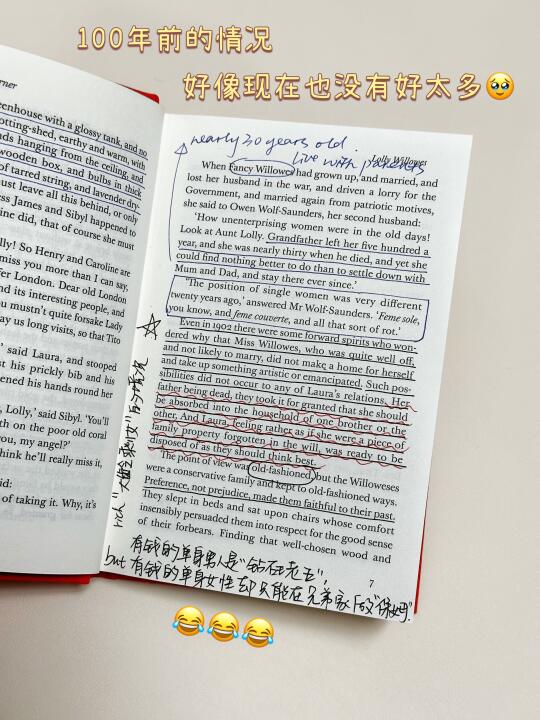 100年前的情况
好像现在也没有好太多🥹
rner
eenhouse with a glossy tank, and no
otting-shed, earthy and warm, with
ds hanging from the ceiling, and
wooden box, and bulbs in thick
of tarred string, and lavender dry-
ust leave all this behind, or only
ss James and Sibyl happened to
ine did, that of course she must
lly! So Henry and Caroline are
miss you more than I can say,
fer London. Dear old London
nd its interesting people, and
u mustn't quite forsake Lady
ay us long visits, so that Tito
' said Laura, and stooped
his prickly bib and his
ened his hands round her
, Lolly,' said Sibyl. 'You'll
th on the poor old coral
you, my angel?'
hink he'll really miss it,
id:
of taking it. Why, it's
nearly 30 years old.
live with parents
Lolly Willowes
When Fancy Willowes had grown up, and married, and
lost her husband in the war, and driven a lorry for the
Government, and married again from patriotic motives,
she said to Owen Wolf-Saunders, her second husband:
'How unenterprising women were in the old days!
Look at Aunt Lolly. Grandfather left her five hundred a
year, and she was nearly thirty when he died, and yet she
could find nothing better to do than to settle down with
Mum and Dad, and stay there ever since.'
'The position of single women was very different
twenty years ago,' answered Mr Wolf-Saunders. 'Feme sole,
you know, and feme couverte, and all that sort of rot.'
Even in 1902 there were some forward spirits who won-
dered why that Miss Willowes, who was quite well off,
and not likely to marry, did not make a home for herself
and take up something artistic or emancipated. Such pos-
sibilities did not occur to any of Laura's relations. Her
father being dead, they took it for granted that she should
be absorbed into the household of one brother or the
other. And Laura, feeling rather as if she were a piece of
family property forgotten in the will, was ready to be
disposed of as they should think best.
The point of view was old-fashioned, but the Willoweses
were a conservative family and kept to old-fashioned ways.
Preference, not prejudice, made them faithful to their past.
They slept in beds and sat upon chairs whose comfort
insensibly persuaded them into respect for the good sense
of their forbears. Finding that well-chosen wood and
7
rich "大龄剩女"的情况
有钱的单身男人是"钻石老五",
but 有钱的单身女性却只能在兄弟家做"保姆".